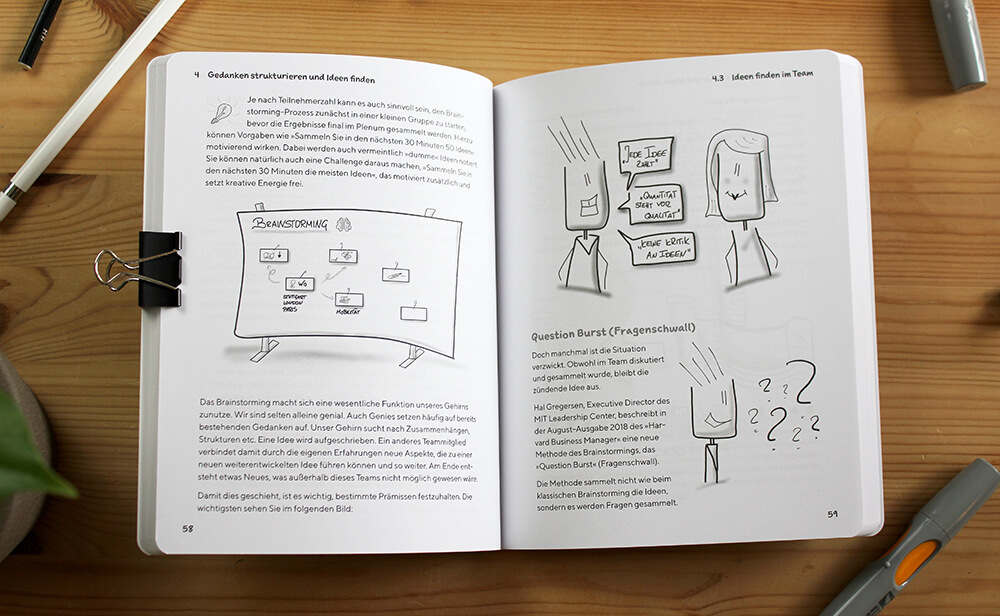 4 Gedanken strukturieren und Ideen finden
Je nach Teilnehmerzahl kann es auch sinnvoll sein, den Brain-
storming-Prozess zunächst in einer kleinen Gruppe zu starten,
bevor die Ergebnisse final im Plenum gesammelt werden. Hierzu
können Vorgaben wie »Sammeln Sie in den nächsten 30 Minuten 50 Ideen«
motivierend wirken. Dabei werden auch vermeintlich »dumme« Ideen notiert.
Sie können natürlich auch eine Challenge daraus machen, »Sammeln Sie in
den nächsten 30 Minuten die meisten Ideen«, das motiviert zusätzlich und
setzt kreative Energie frei.
BRAINSTORMING
WO
STUTTGART
LONDON
PARIS
MOBILITÄT
Das Brainstorming macht sich eine wesentliche Funktion unseres Gehirns
zunutze. Wir sind selten alleine genial. Auch Genies setzen häufig auf bereits
bestehenden Gedanken auf. Unser Gehirn sucht nach Zusammenhängen,
Strukturen etc. Eine Idee wird aufgeschrieben. Ein anderes Teammitglied
verbindet damit durch die eigenen Erfahrungen neue Aspekte, die zu einer
neuen weiterentwickelten Idee führen können und so weiter. Am Ende ent-
steht etwas Neues, was außerhalb dieses Teams nicht möglich gewesen wäre.
Damit dies geschieht, ist es wichtig, bestimmte Prämissen festzuhalten. Die
wichtigsten sehen Sie im folgenden Bild:
58
4.3 Ideen finden im Team
„JEDE IDEE
ZÄHLT"
„QUANTITÄT
STEHT VOR
QUALITÄT"
„KEINE KRITIK
AN IDEEN"
Question Burst (Fragenschwall)
Doch manchmal ist die Situation
verzwickt. Obwohl im Team diskutiert
und gesammelt wurde, bleibt die
zündende Idee aus.
Hal Gregersen, Executive Director des
MIT Leadership Center, beschreibt in
der August-Ausgabe 2018 des »Har-
vard Business Manager« eine neue
Methode des Brainstormings, das
»Question Burst« (Fragenschwall).
Die Methode sammelt nicht wie beim
klassischen Brainstorming die Ideen,
sondern es werden Fragen gesammelt.
? ? ? ? ? ? ?
59
4H